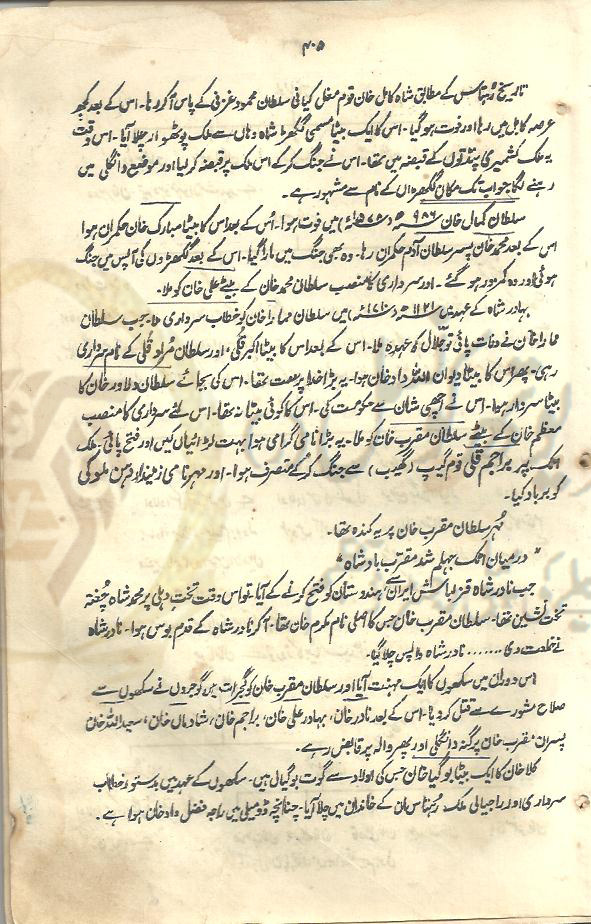 ۴۰۵
تاریخ رہتاس کے مطابق شاہ کابل خان قوم مغل کیانی سلطان محمود غزنی کے پاس آکر رہا۔ اس کے بعد کچھ
عرصہ کابل میں رہا اور فوت ہو گیا۔ اس کا ایک بیٹا مسمی گکھڑ شاہ وہاں سے ملک پوٹھوار چلا آیا۔ اس وقت
یہ ملک کشمیری پنڈتوں کے قبضہ میں تھا۔ اس نے جنگ کر کے اس ملک پر قبضہ کر لیا اور موضع دانگلی میں
رہنے لگا جو اب تک مکان گکھڑاں کے نام سے مشہور ہے۔
سلطان کمال خان ۹۸۶ھ د ۱۵۷۸ء میں فوت ہوا۔ اُس کے بعد اس کا بیٹا مبارک خان حکمران ہوا
اس کے بعد محمد خان پسر سلطان آدم حکمران رہا۔ وہ بھی جنگ میں مارا گیا۔ اس کے بعد گکھڑوں کی آپس میں جنگ
ہوئی اور وہ کمزور ہو گئے۔ اور سرداری کا منصب سلطان محمد خان کے بیٹے علی خان کو ملا۔
بہادر شاہ کے عہد میں ۱۱۲۱ھ د ۱۷۱۰ء میں سلطان مارا خان کو خطاب سرداری ملا۔ جب سلطان
مارا خان نے وفات پائی تو جلال کو عہدہ ملا۔ اس کے بعد اس کا بیٹا اکبر قلی، اور سلطان مراد قلی کے نام سرداری
رہی۔ پھر اس کا بیٹا دیوان اللہ داد خان ہوا۔ یہ بڑا خدا پرست تھا۔ اس کی بجائے سلطان دلاور خان کا
بیٹا سردار ہوا۔ اس نے اچھی شان سے حکومت کی۔ اس کا کوئی بیٹا نہ تھا۔ اس لئے سرداری کا منصب
معظم خان کے بیٹے سلطان مقرب خان کو ملا۔ یہ بڑا نامی گرامی ہوا بہت لڑائیاں کیں اور فتح پائی۔ ملک
اٹک پر براجم قلی قوم گیپ (گھیب) سے جنگ کر کے متصرف ہوا۔ اور مہر نامی زمیندار دہن ملو کی
کو برباد کیا۔
مُہر سلطان مقرب خان پر یہ کندہ تھا۔
"درمیان اٹک جہلم شد مقرب بادشاہ"
جب نادر شاہ قزلباش ایران سے ہندوستان کو فتح کرنے کے آیا، تو اس وقت تخت دہلی پر محمد شاہ چغتہ
تخت نشین تھا۔ سلطان مقرب خان جس کا اصلی نام کرم خان تھا۔ آکر نادر شاہ کے قدم بوس ہوا۔ نادر شاہ
نے خلعت دی ....... نادر شاہ واپس چلا گیا۔
اس دوران میں سکھوں کا ایک مہنت آیا اور سلطان مقرب خان کو گجرات میں گوجروں نے سکھوں سے
صلاح مشورے سے قتل کر دیا۔ اس کے بعد نادر خان، بہادر علی خان، براجم خان، شادماں خان، سعید اللہ خان
پسران مقرب خان پرگنہ دانگلی اور پھروالہ پر قابض رہے۔
کلا خان کا ایک بیٹا بوگیا خان جس کی اولاد سے گوت بوگیال ہیں۔ سکھوں کے عہد میں بدستور خطاب
سرداری اور راجپالی ملک رہتاس ان کے خاندان میں چلا آیا۔ چنانچہ ڈومیلی میں راجہ فضل داد خان ہوا ہے۔